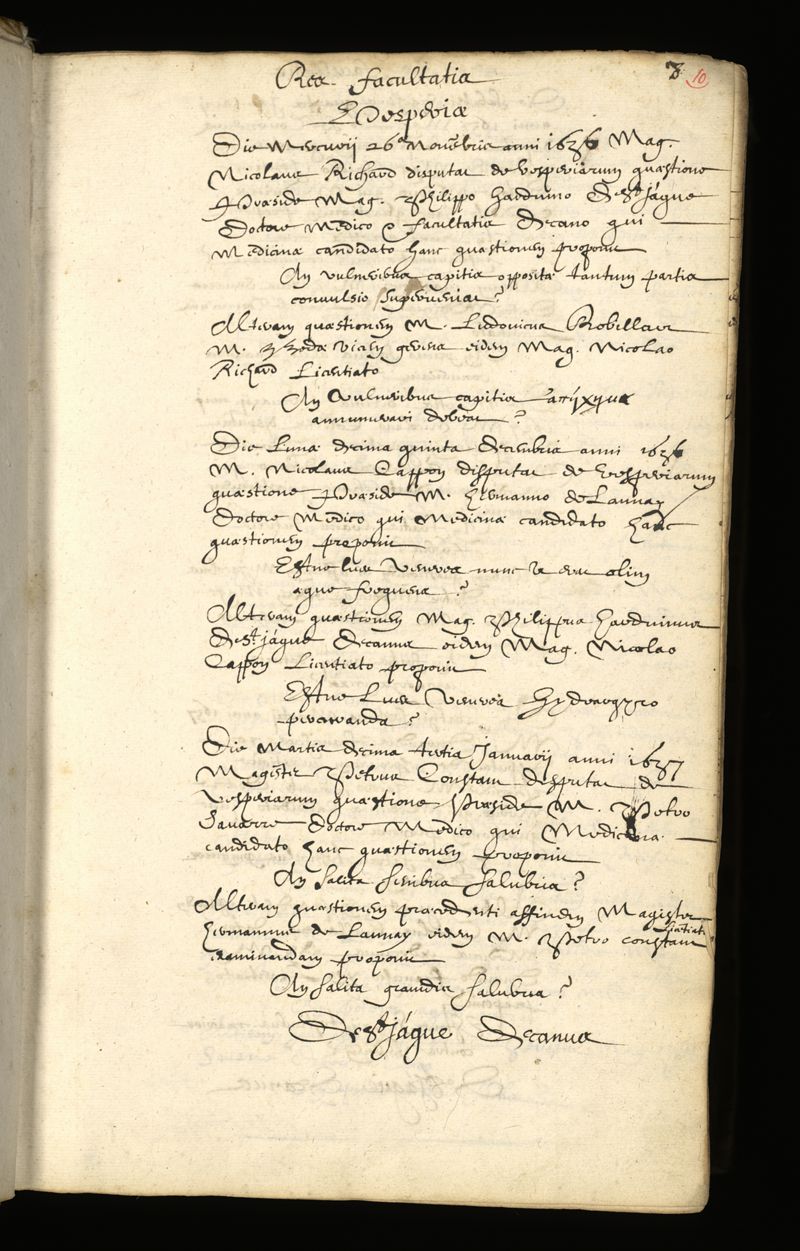 Res facultatis
8 10
Vesperiæ
Die Mercurij 26a Novembris anni 1636 Mag.
Nicolaus Richard disputat de vesperiarum quæstione
Præside Mag. Philippo harduino De St jáque
Doctore Medico & facultatis Decano qui
Medicinæ candidato hanc quæstionem proponit
An vulneribus capitis oppositæ tantum partis
convulsio superveniat?
Alteram quæstionem M. Ludovicus Robillart
M. vicem gerens eidem Mag. Nicolao
Richard Licentiato
An Vulneribus capitis
annumerari debeat?
Die Lunæ decima quinta Decembris anni 1636
M. Nicolaus Cappon disputat de Vesperiarum
quæstione Præside M. hermanno de Launay
Doctore Medico qui Medicinæ candidato hanc
quæstionem proponit
Estne lues Venerea nunc ut erat olim
æque frequens?
Alteram quæstionem Mag. Philippus harduinus
De St jáque Decanus eidem Mag. Nicolao
Cappon Licentiato proponit
Estne Lues Venerea hydrargyro
percuranda?
Die Martis decima tertia Januarij anni 1637
Magister Petrus Constant disputat de
Vesperiarum quæstione Præside M. Petro
Navarre Doctore Medico qui Medicinæ
candidato hanc quæstionem proponit
An salita senibus salubria?
Alteram quæstionem præcedenti affinem Magister
hermannus de Launay eidem M. Petro constant Licentiato
examinandam proponit
An salita grandia salubria?
De St jáque Decanus